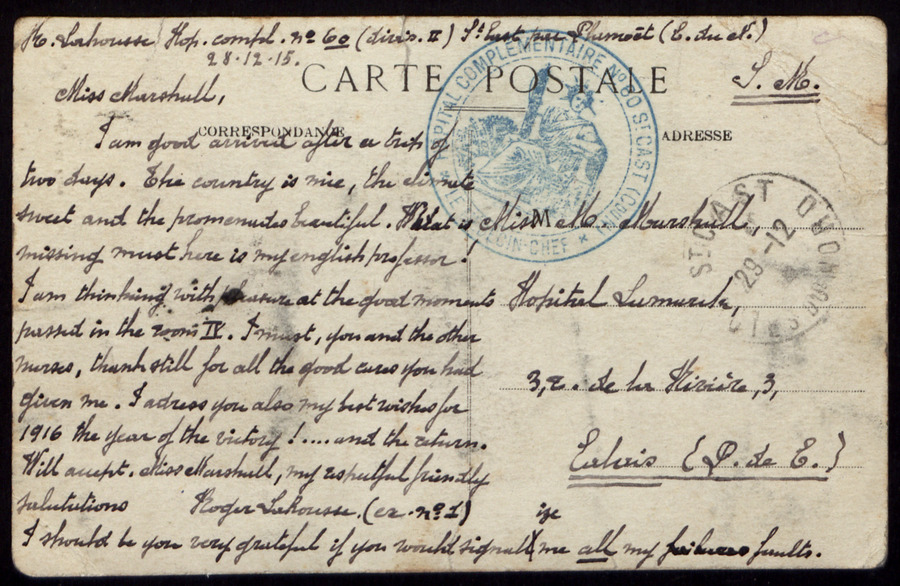 R. Lahousse Hop. compl. nº 60 (divis. II) St Cast par Plancoët (C. du N.)
28-12-15.
CARTE POSTALE
S. M.
Miss Marshall,
CORRESPONDANCE
ADRESSE
I am good arrived after a trip of
two days. The country is nice, the climate
sweet and the promenades beautiful. What is
missing must here is my english professor!
I am thinking with pleasure at the good moments
passed in the room IV. I must, you and the other
nurses, thank still for all the good cares you had
given me. I adress you also my best wishes for
1916 the year of the victory ! .... and the return.
Will accept. Miss Marshall, my respetful friendly
salutations Roger Lahousse. (ex-nº 1)
I should be you very grateful if you would signalize me all my failures faults.
Miss M. Marshall
Hopital Lamarck,
3, r. de la Rivière, 3,
Calais (P. de C.)
HOPITAL COMPLEMENTAIRE Nº 60 ST CAST
MÉDECIN-CHEF
ST CAST
29-12
COTES DU NORD